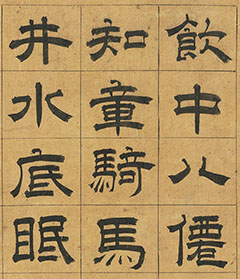 飲中八僊
知章騎馬
井水底眠